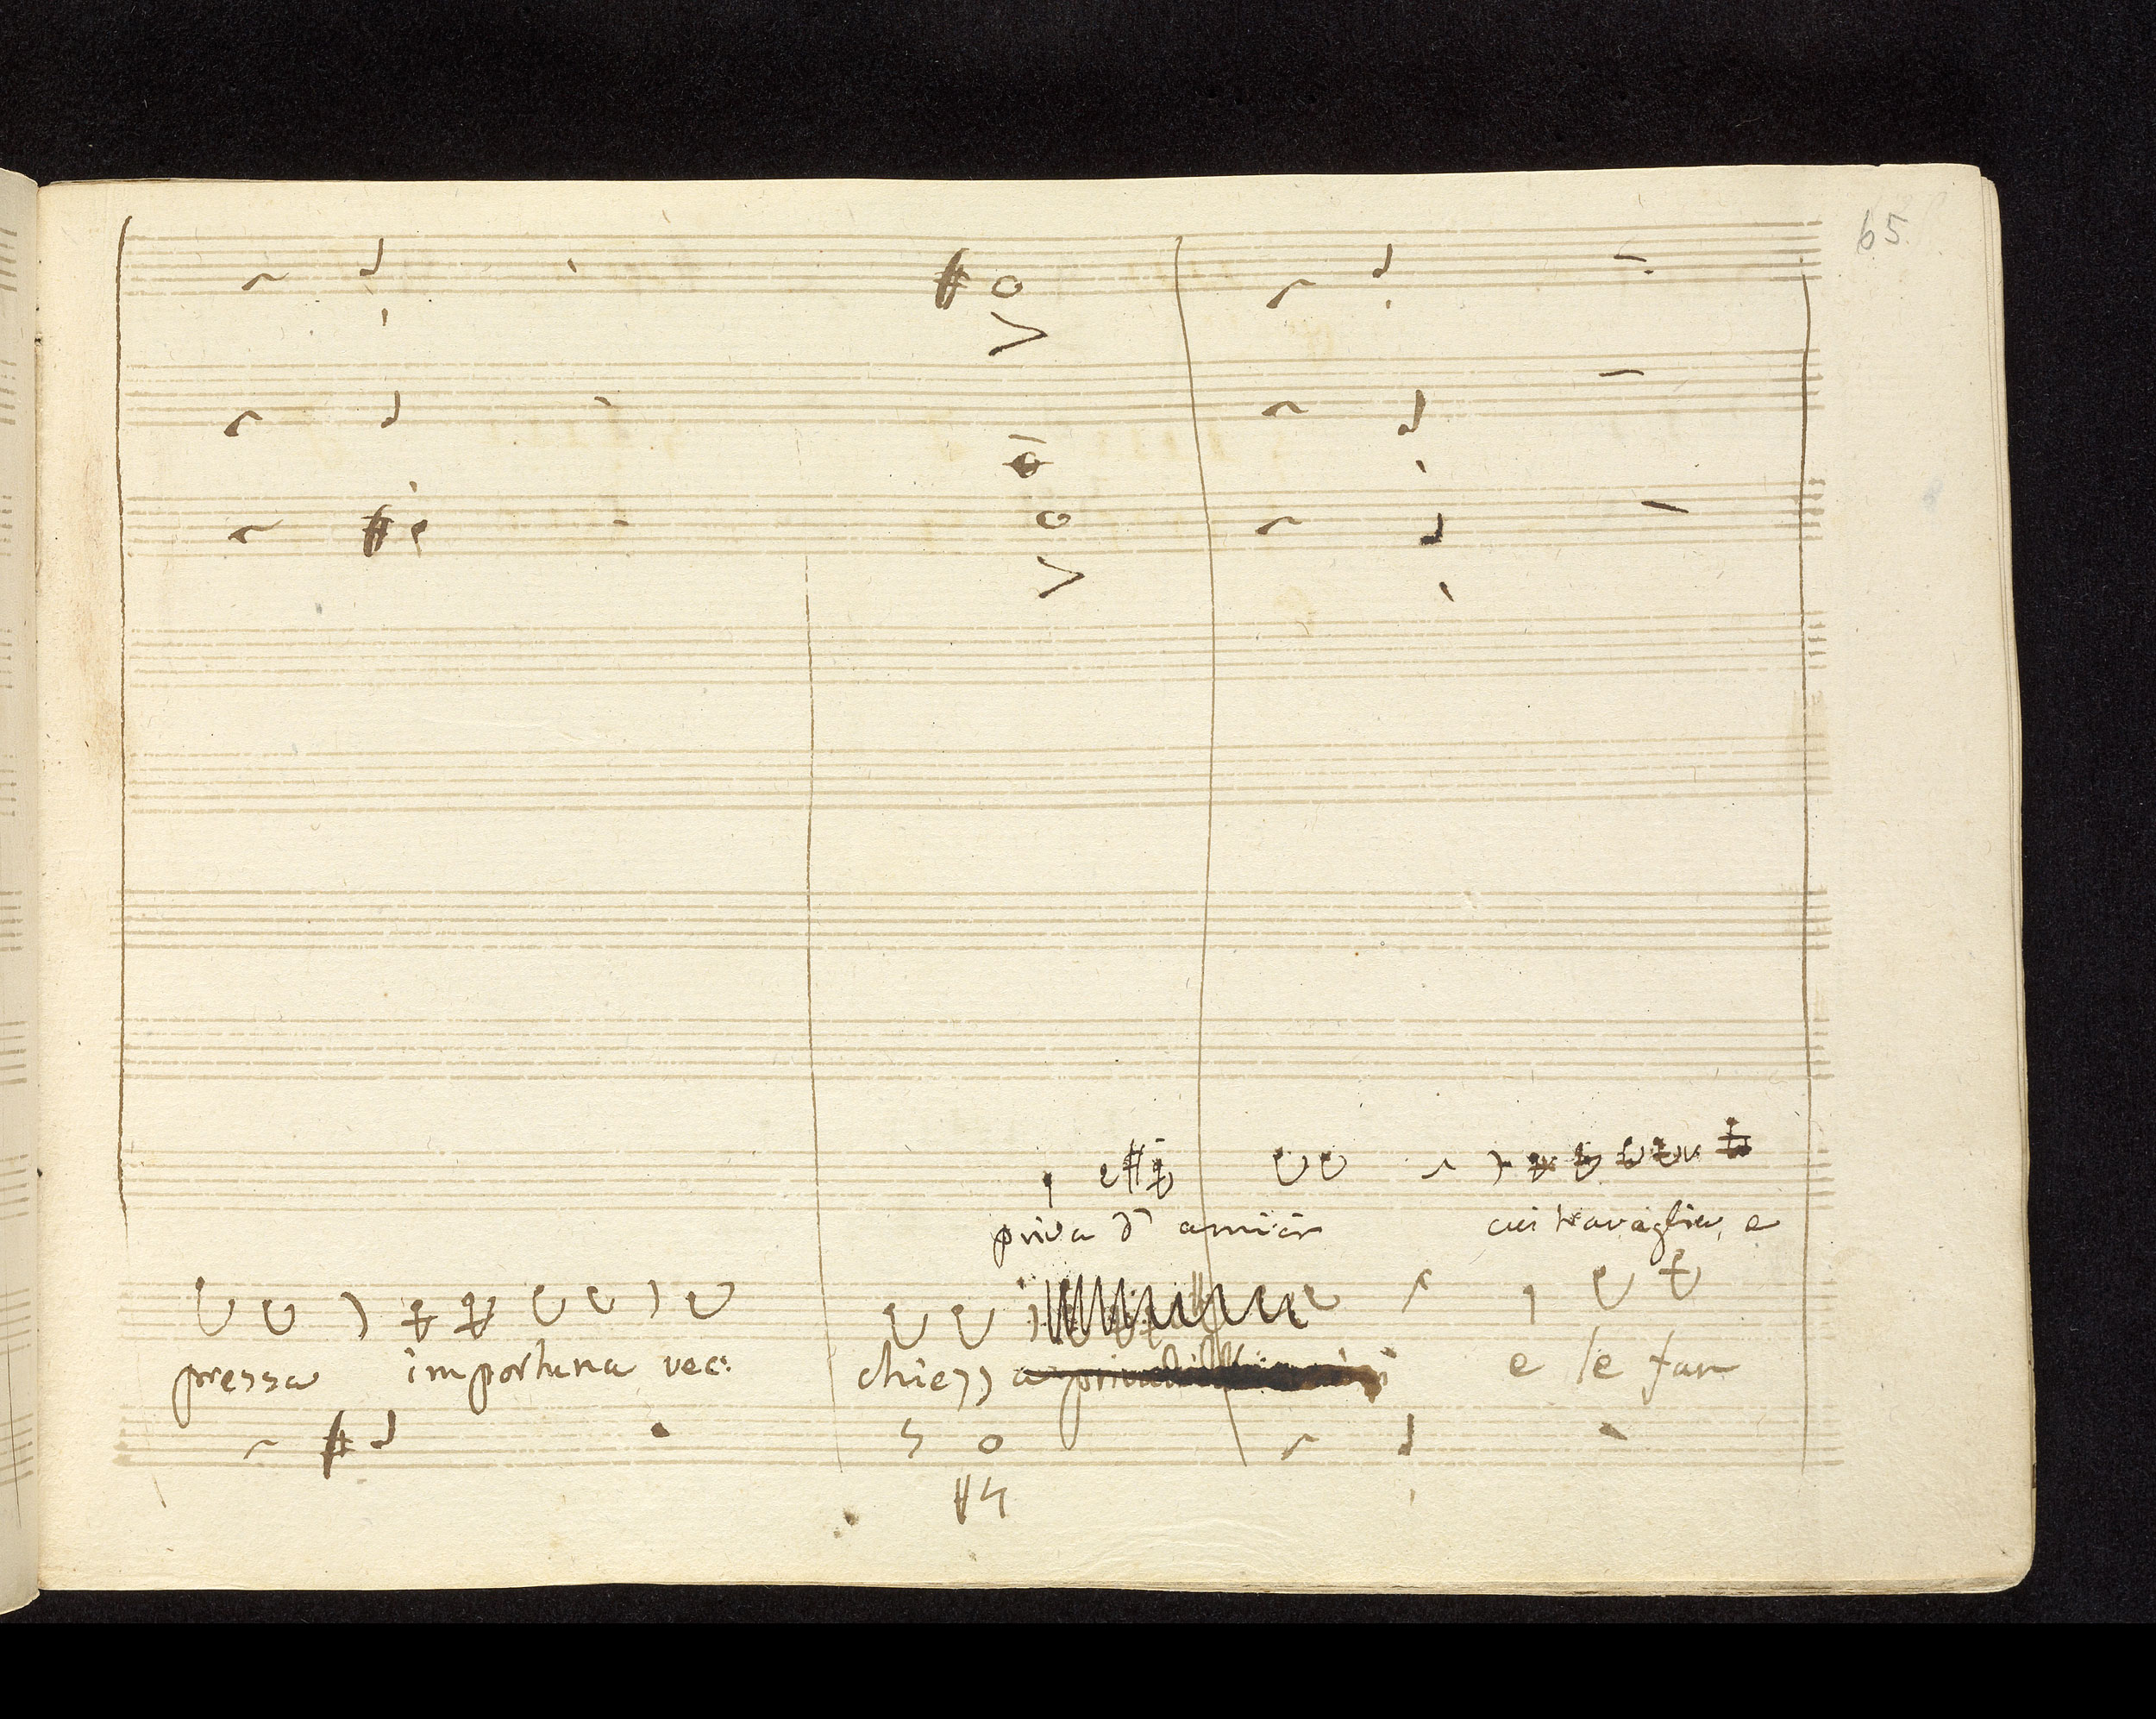 65
priva d' amici cui travaglia, e
pressa importuna vec: chiezza e le fan